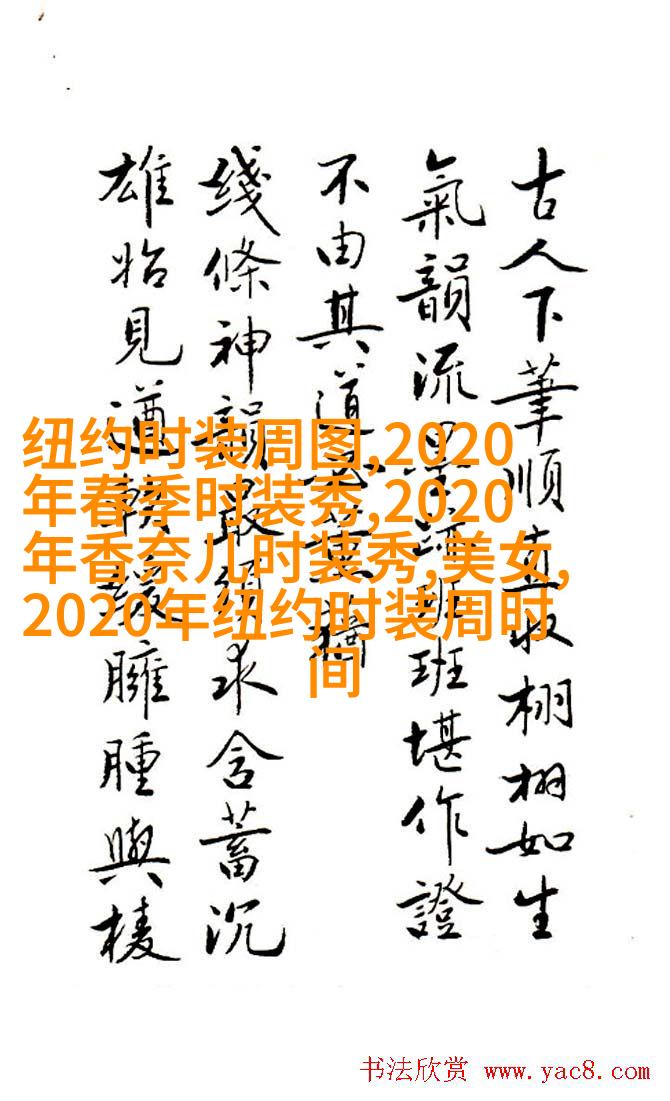 古人下筆順直收栩栩如生
氣韻流班班堪作證
不由其道
綫條神韻最求含蓄沉
雄始見遒臃腫與棱
纽约时装周图,2020
年春季时装秀,2020
年香奈儿时装秀,美女,
2020年纽约时装周时
间
书法欣赏 www.yac8.com